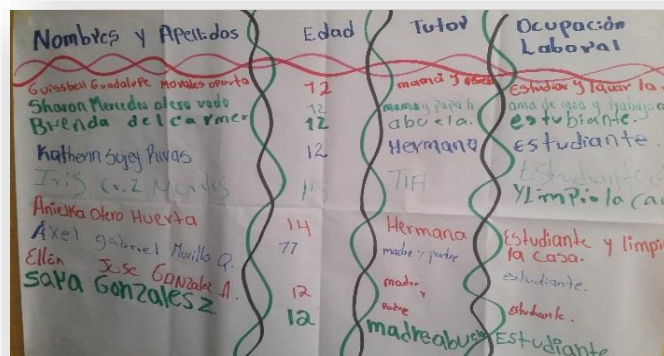 Nombres y Apellidos Edad Tutor Ocupación
Laboral
Guissbell Guadalupe Morales oporta 12 mamá y Estudiar y lavar la
Sharon Mercedes olero vado 12 mama y papá ama de casa y
Brenda del carmen 12 abuela. estubiante.
Katherin Sujey Rivas 12 Hermana Estudiante.
Iris Cruz Morales Tia Estudiante
y Limpio la
Anielka Olero Huerta 14 Hermana Estudiante y limpi
la casa.
Axel gabriel Murillo Q. 11 madre y padre estudiante.
Ellën Jose GONZalez A. 12 madre y Padre estudiante.
Sara Gonzales z 12 madre abuela Estudiante